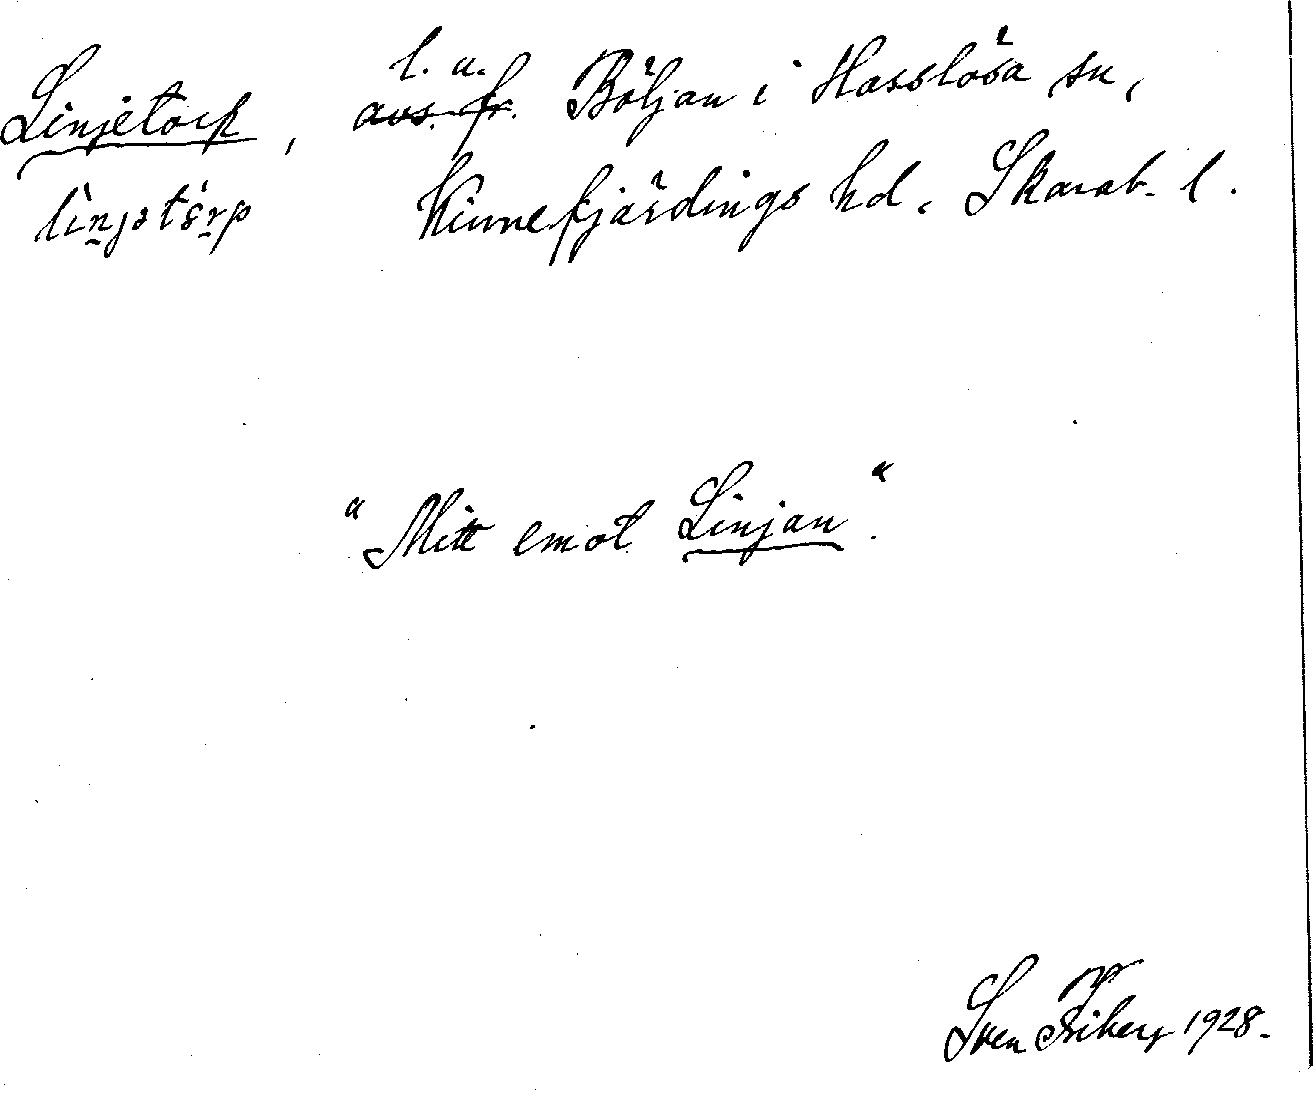 l. u.
Linjetorp, avs. fr. Böljan i Hasslösa sn,
Kinnefjärdings hd, Skarab. l.
"Mitt emot Linjan".
Sven Friberg 1928.